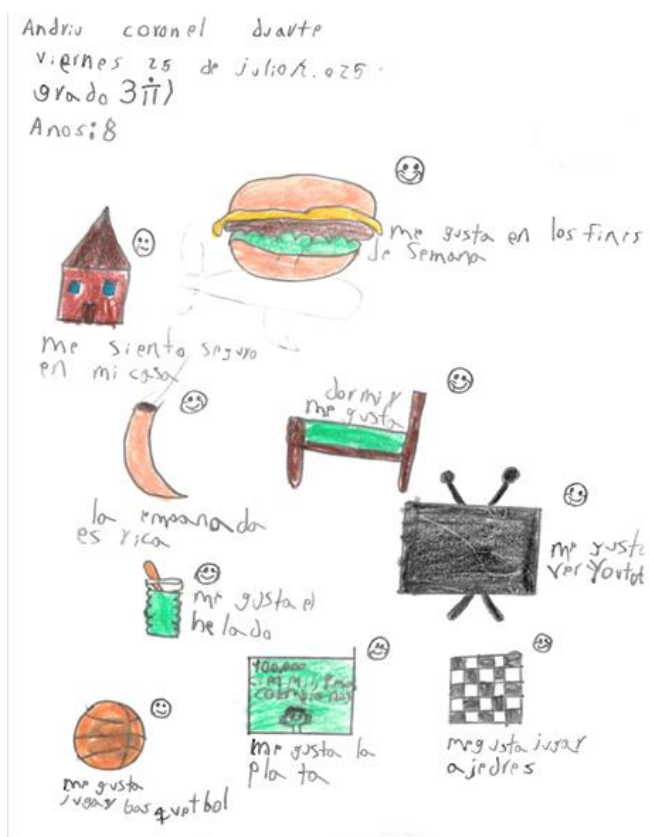 Andriu coronel duarte
viernes 25 de julio
grado 3
Anos: 8
me gusta en los fines
de semana
me siento seguro
en mi casa
dormir
me gusta
la empanada
es rica
me gusta
ver
me gusta el
helado
100,000
colombianos
me gusta la
plata
me gusta jugar
ajedres
me gusta
jugar basquetbol